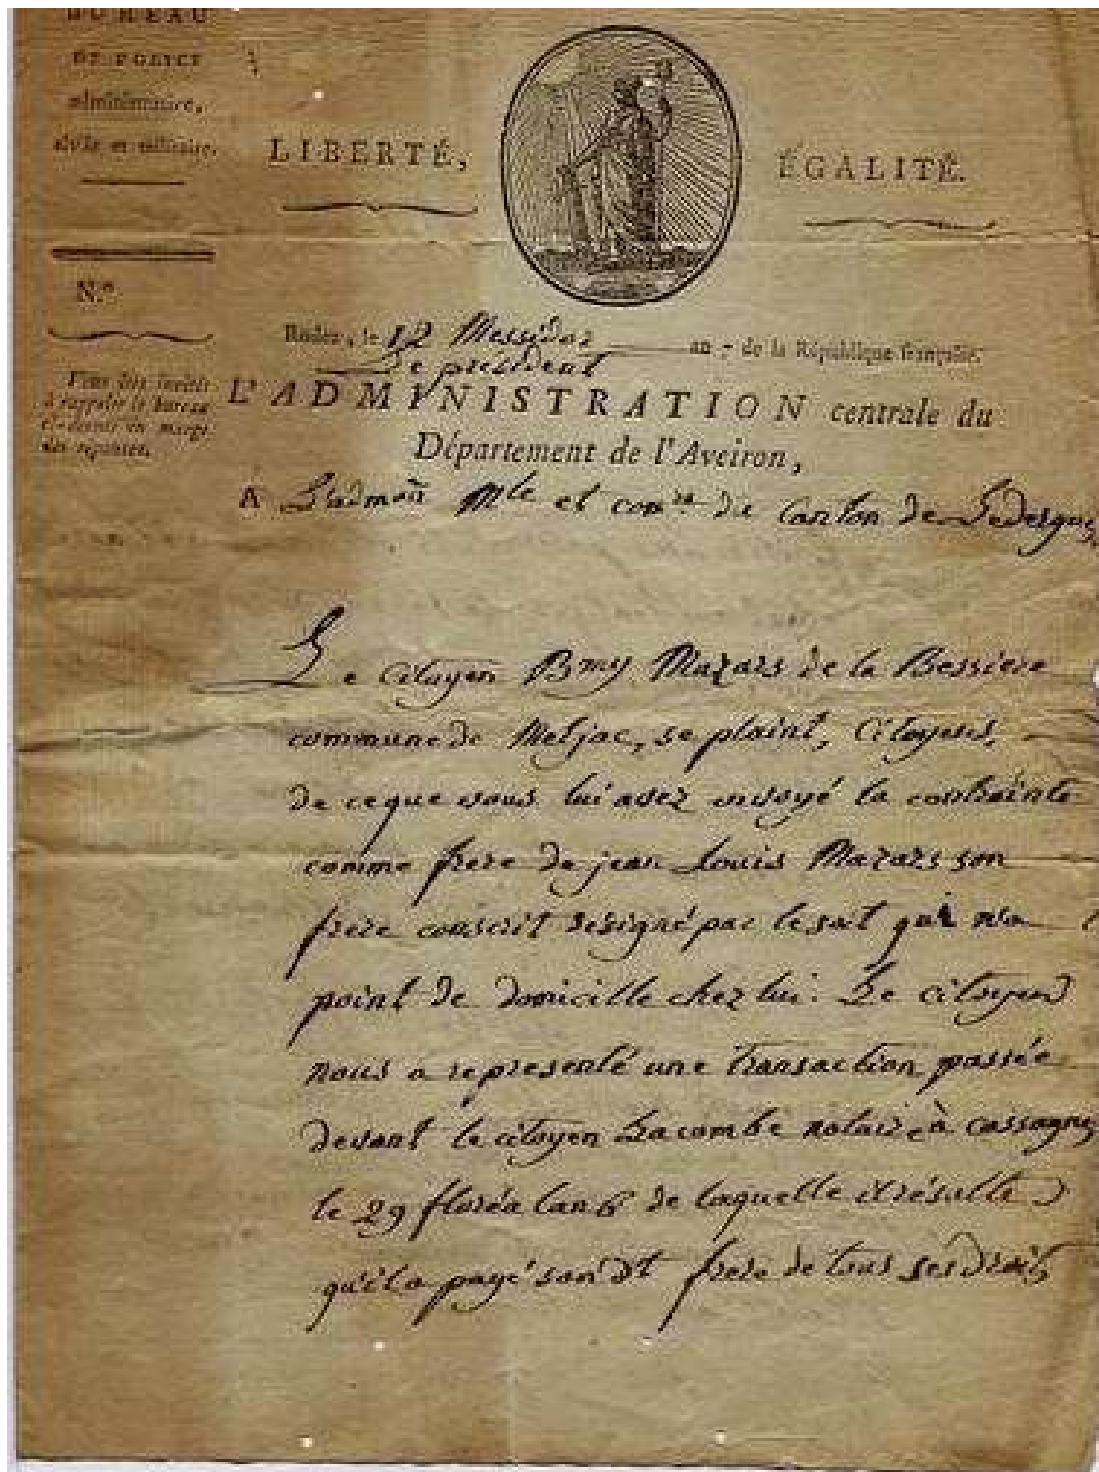 BUREAU
DE POLICE
administrative,
civile et militaire.
LIBERTÉ,
ÉGALITÉ.
N.º
Rodez, le 12 Messidor an 7 de la République française.
Le président
Vous êtes invités
à rappeler le bureau
ci-dessus en marge
des réponses.
L'ADMINISTRATION centrale du
Département de l'Aveiron,
A L'admon Mle et conre du Canton de Ledergues
Le Citoyen Bmy Mazars de la Bessiere
commune de Meljac, se plaint, Citoyens,
de ceque vous lui avez envoyé la contrainte
comme frere de jean Louis Mazars son
frere conscrit designé par le sort qui na
point de domicille chez lui. Le citoyen
nous a representé une transaction passée
devant le citoyen Lacombe notaire à cassagnes
le 29 floréal an 6 de laquelle il résulte
qu'il a payé son dt frere de tous ses droits